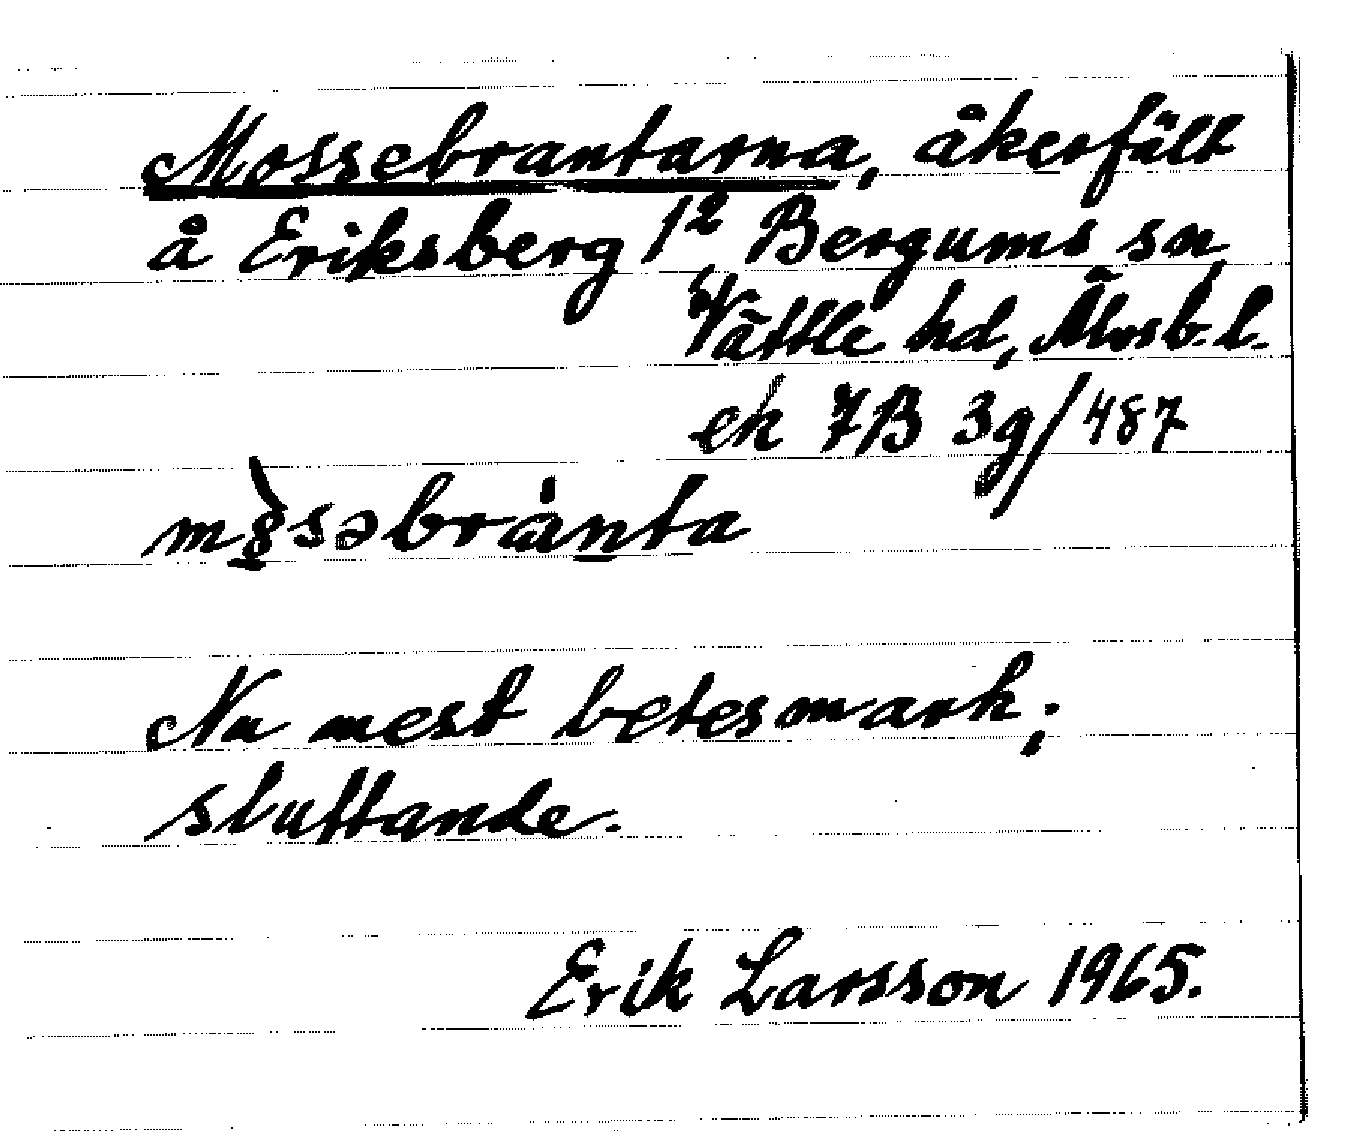 Mossebrantarna, åkerfält
å Eriksberg 1² Bergums sn
Vättle hd, Älvsb. l.
ek 7B 3g/487
Nu mest betesmark;
sluttande.
Erik Larsson 1965.